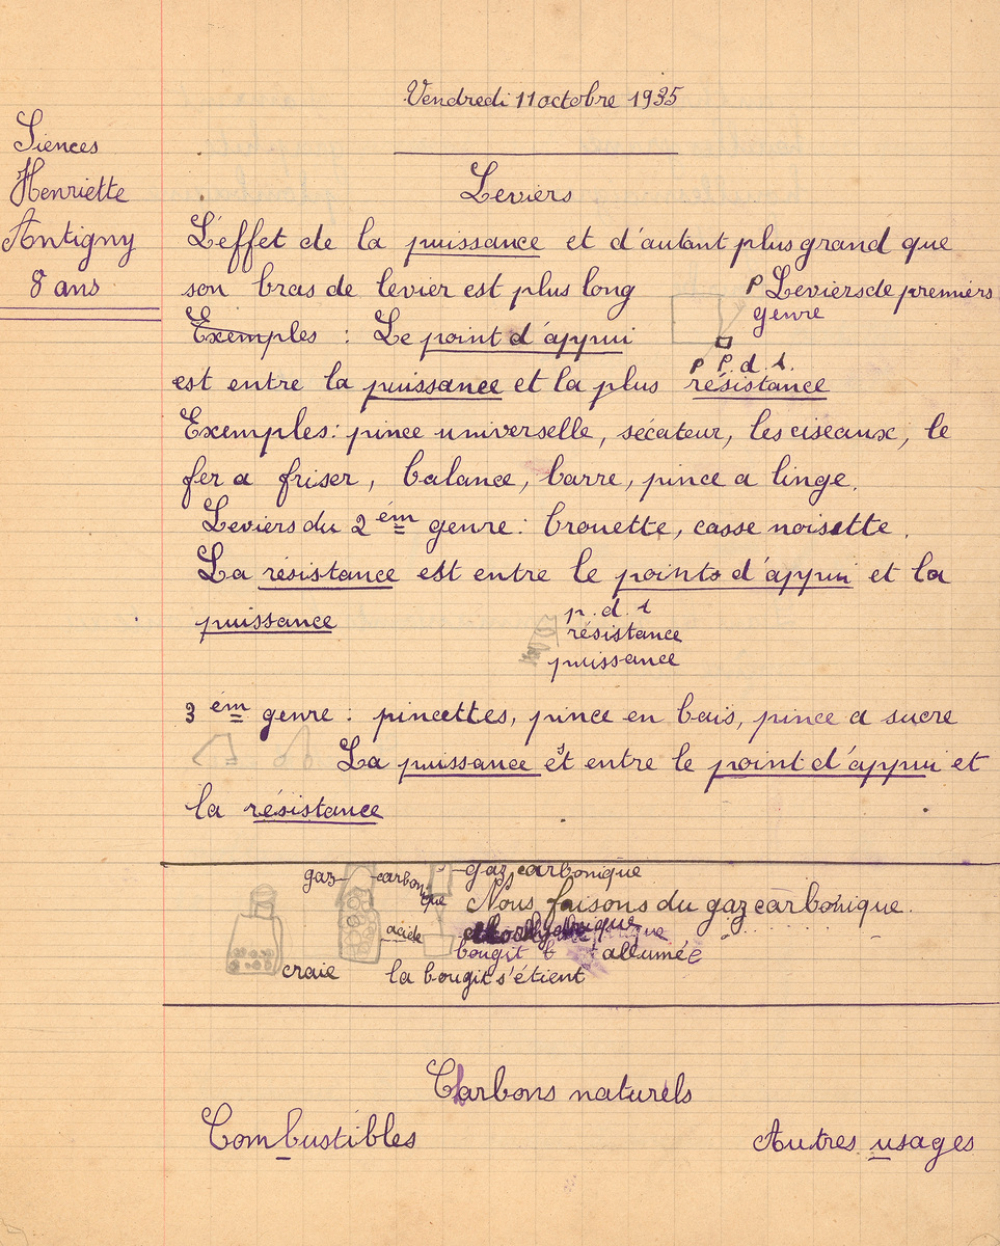 Vendredi 11 octobre 1935
Siences
Henriette
Antigny
8 ans
Leviers
L'effet de la puissance et d'autant plus grand que
son bras de levier est plus long
P Leviers de premiers
genre
Exemples : Le point d'appui
P P. d. A.
est entre la puissance et la plus résistance
Exemples: pince universelle, sécateur, les ciseaux, le
fer a friser, balance, barre, pince a linge.
Leviers du 2 ém genre : brouette, casse noisette.
La résistance est entre le points d'appui et la
puissance
p. d. A
résistance
puissance
3 ém genre : pincettes, pince en bais, pince a sucre
La puissance est entre le point d'appui et
la résistance
gaz carbonique
gaz carbonique
Nous faisons du gaz carbonique.
acide
bougit allumée
craie
la bougit s'étient
Charbons naturels
Combustibles
Autres usages